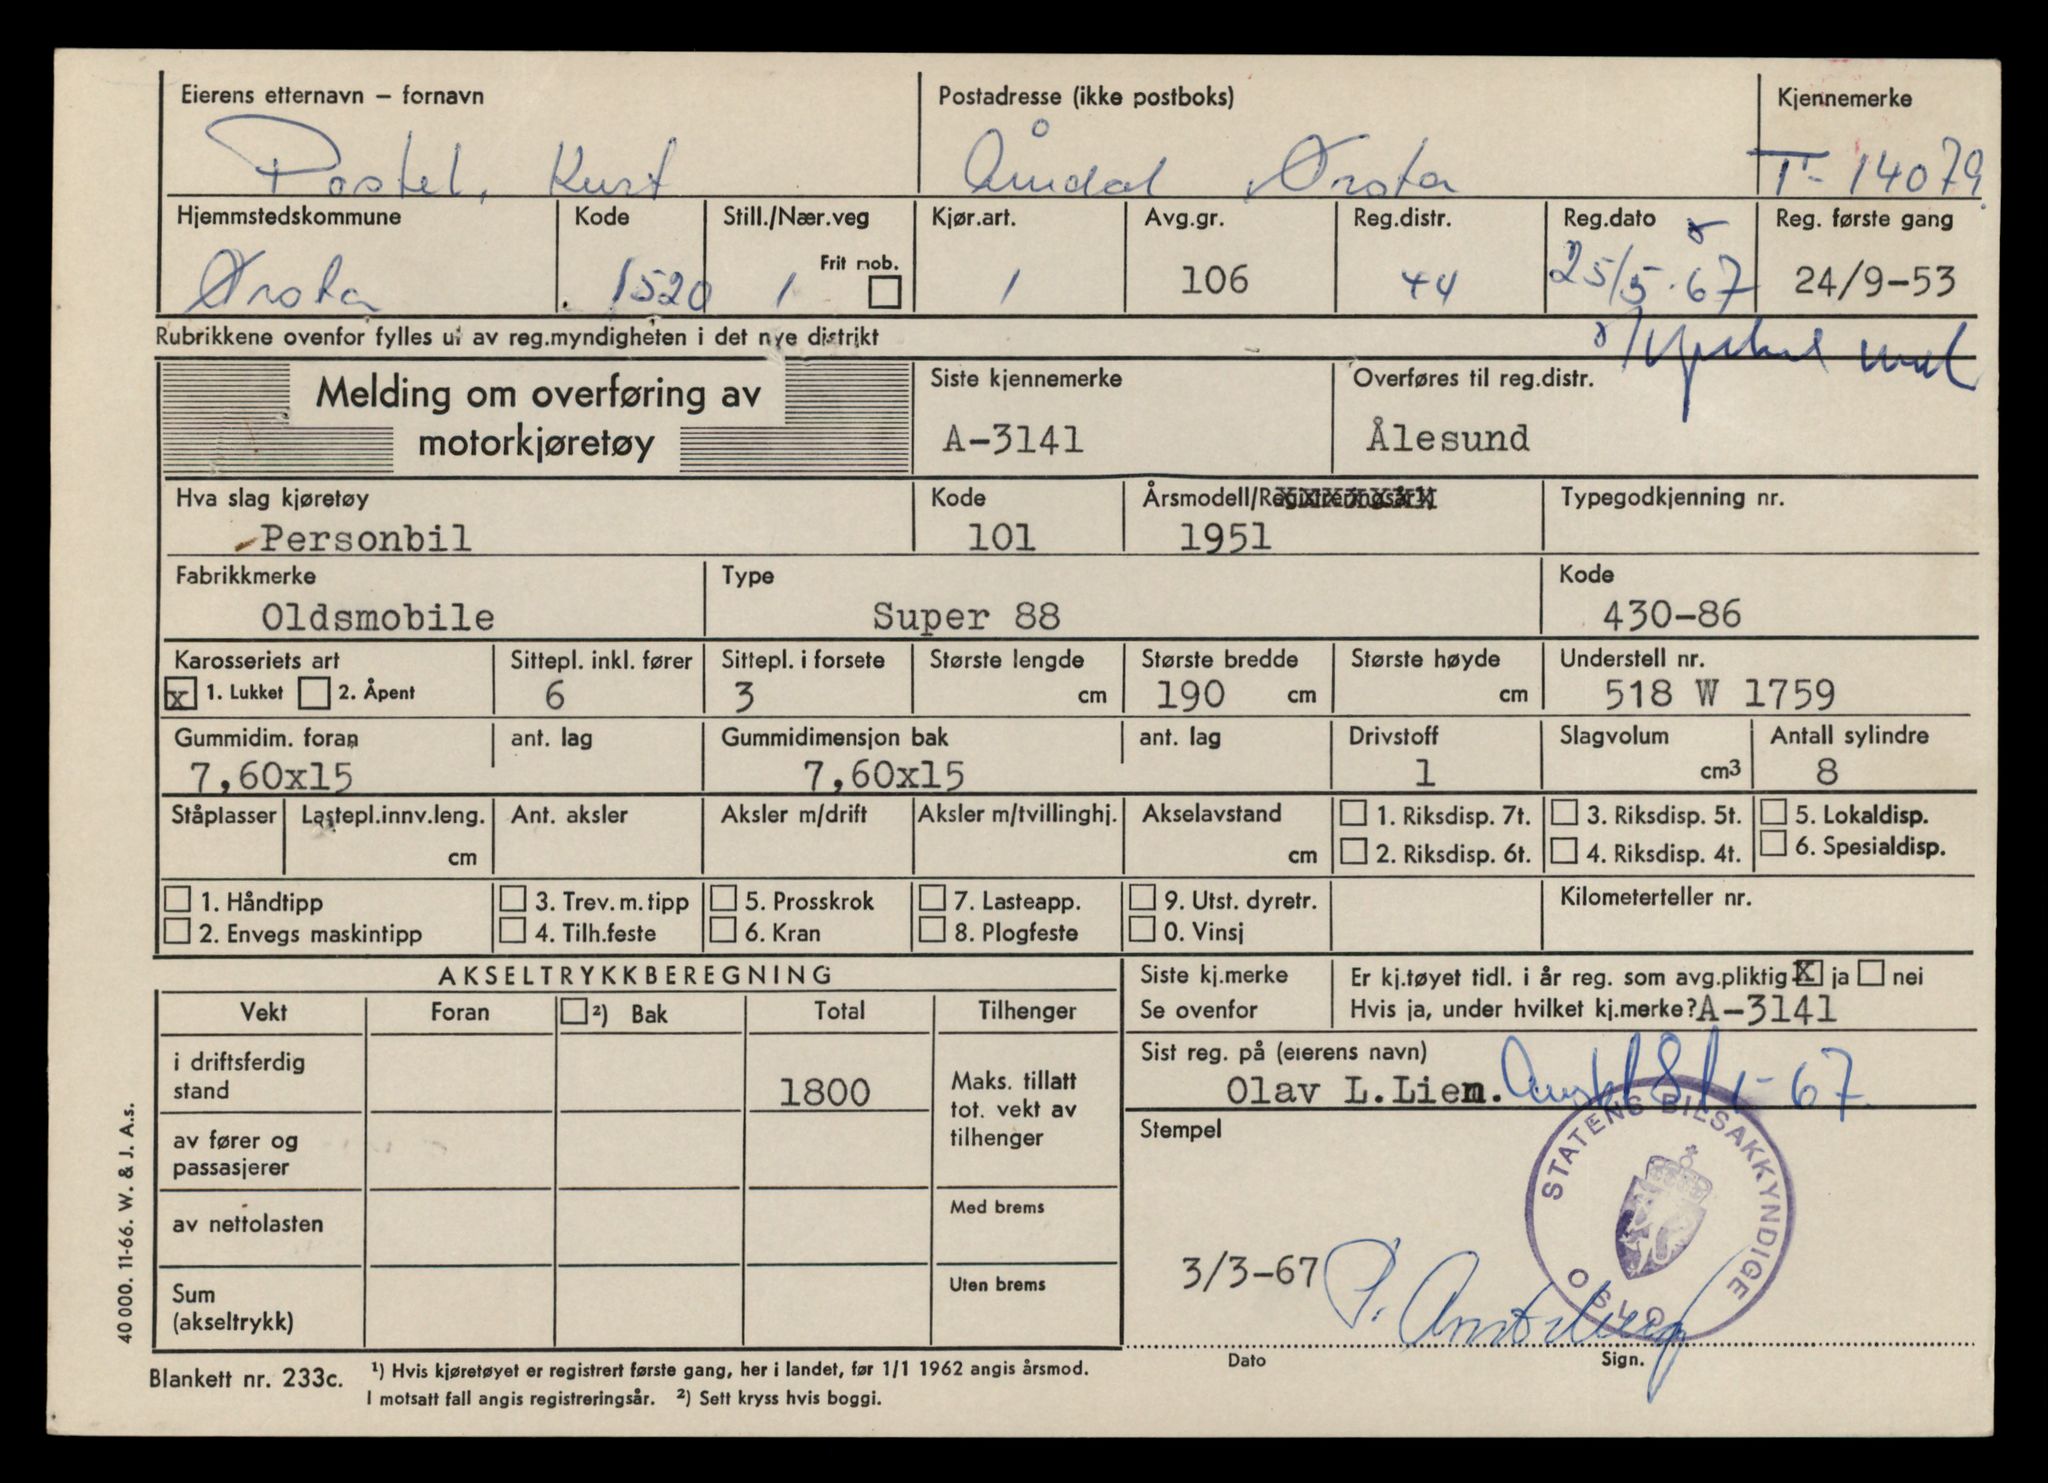 Eierens etternavn – fornavn Postadresse (ikke postboks) Kjennemerke
Postel, Kurt Åmdal Ørsta T-14079
Hjemmstedskommune Kode Still./Nær.veg Kjør.art. Avg.gr. Reg.distr. Reg.dato Reg. første gang
Frit mob.
Ørsta 1520 1 1 106 44 25/5-67 24/9-53
Rubrikkene ovenfor fylles ut av reg.myndigheten i det nye distrikt
Melding om overføring av motorkjøretøy
Siste kjennemerke Overføres til reg.distr.
A-3141 Ålesund
Hva slag kjøretøy Kode Årsmodell/Registreringsår1) Typegodkjenning nr.
Personbil 101 1951
Fabrikkmerke Type Kode
Oldsmobile Super 88 430-86
Karosseriets art Sittepl. inkl. fører Sittepl. i forsete Største lengde Største bredde Største høyde Understell nr.
x 1. Lukket 2. Åpent 6 3 cm 190 cm cm 518 W 1759
Gummidim. foran ant. lag Gummidimensjon bak ant. lag Drivstoff Slagvolum Antall sylindre
7,60x15 7,60x15 1 cm3 8
Ståplasser Lastepl.innv.leng. Ant. aksler Aksler m/drift Aksler m/tvillinghj. Akselavstand 1. Riksdisp. 7t. 3. Riksdisp. 5t. 5. Lokaldisp.
cm cm 2. Riksdisp. 6t. 4. Riksdisp. 4t. 6. Spesialdisp.
1. Håndtipp 3. Trev. m. tipp 5. Prosskrok 7. Lasteapp. 9. Utst. dyretr. Kilometerteller nr.
2. Envegs maskintipp 4. Tilh.feste 6. Kran 8. Plogfeste 0. Vinsj
AKSELTRYKKBEREGNING
Vekt Foran 2) Bak Total Tilhenger
i driftsferdig stand 1800 Maks. tillatt tot. vekt av tilhenger
av fører og passasjerer
av nettolasten Med brems
Sum (akseltrykk) Uten brems
Siste kj.merke Er kj.tøyet tidl. i år reg. som avg.pliktig x ja nei
Se ovenfor Hvis ja, under hvilket kj.merke? A-3141
Sist reg. på (eierens navn)
Olav L.Lien. 8/1-67
Stempel
STATENS BILSAKKYNDIGE
OSLO
3/3-67
Dato Sign.
40 000. 11-66. W. & J. A.s.
Blankett nr. 233c. 1) Hvis kjøretøyet er registrert første gang, her i landet, før 1/1 1962 angis årsmod.
I motsatt fall angis registreringsår. 2) Sett kryss hvis boggi.